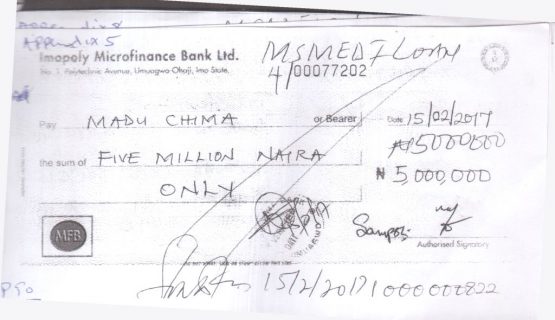 Appendix 5
Imopoly Microfinance Bank Ltd.
No. 1 Polytechnic Avenue, Umuagwo Ohaji, Imo State.
MSMEDF LOAN
4/00077202
Pay MADU CHIMA or Bearer
Date 15/02/2017
the sum of FIVE MILLION NAIRA
₦5000000
ONLY
₦ 5,000,000
MFB
Authorised Signatory
15/2/2017
P50